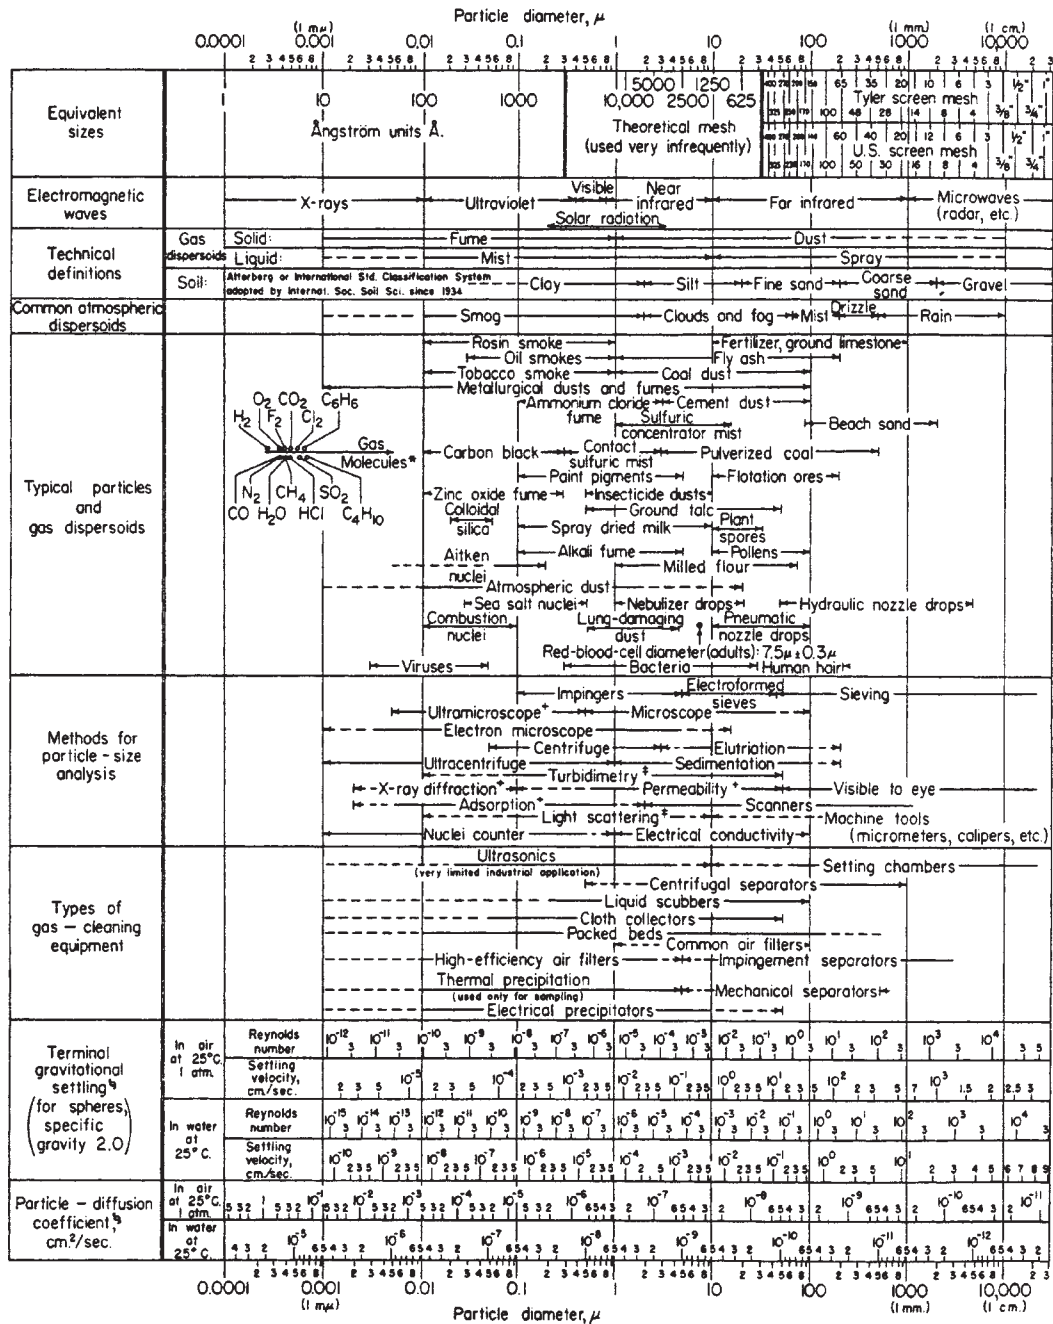 Particle diameter, μ
(1 mμ) (1 mm.) (1 cm.)
0.0001 0.001 0.01 0.1 1 10 100 1000 10,000
2 3 4 5 6 8 2 3 4 5 6 8 2 3 4 5 6 8 2 3 4 5 6 8 2 3 4 5 6 8 2 3 4 5 6 8 2 3 4 5 6 8 2 3 4 5 6 8 2 3
Equivalent sizes
1 10 100 1000
Ångström units Å.
5000 1250
10,000 2500 625
Theoretical mesh
(used very infrequently)
65 35 20 10 6 3 1/2" 1"
Tyler screen mesh
100 48 28 14 8 4 3/8" 3/4"
60 40 20 12 6 3 1/2" 1"
U.S. screen mesh
100 50 30 16 8 4 3/8" 3/4"
Electromagnetic waves
X-rays Ultraviolet Visible Near infrared Far infrared Microwaves (radar, etc.)
Solar radiation
Technical definitions
Gas dispersoids
Solid: Fume Dust
Liquid: Mist Spray
Soil: Atterberg or International Std. Classification System
adopted by Internat. Soc. Soil Sci. since 1934
Clay Silt Fine sand Coarse sand Gravel
Common atmospheric dispersoids
Smog Clouds and fog Mist Drizzle Rain
Typical particles and gas dispersoids
Rosin smoke Fertilizer, ground limestone
Oil smokes Fly ash
Tobacco smoke Coal dust
Metallurgical dusts and fumes
O2 CO2 C6H6
H2 F2 Cl2
Gas Molecules*
N2 CH4 SO2
CO H2O HCl C4H10
Ammonium cloride fume Cement dust
Sulfuric concentrator mist Beach sand
Carbon black Contact sulfuric mist Pulverized coal
Paint pigments Flotation ores
Zinc oxide fume Insecticide dusts
Colloidal silica Ground talc
Spray dried milk Plant spores
Alkali fume Pollens
Aitken nuclei Milled flour
Atmospheric dust
Sea salt nuclei Nebulizer drops Hydraulic nozzle drops
Combustion nuclei Lung-damaging dust Pneumatic nozzle drops
Red-blood-cell diameter (adults): 7.5μ±0.3μ
Viruses Bacteria Human hair
Methods for particle-size analysis
Impingers Electroformed sieves Sieving
Ultramicroscope+ Microscope
Electron microscope
Centrifuge Elutriation
Ultracentrifuge Sedimentation
Turbidimetry‡
X-ray diffraction+ Permeability+ Visible to eye
Adsorption+ Scanners
Light scattering‡ Machine tools
Nuclei counter Electrical conductivity (micrometers, calipers, etc.)
Types of gas – cleaning equipment
Ultrasonics
(very limited industrial application)
Setting chambers
Centrifugal separators
Liquid scubbers
Cloth collectors
Packed beds
Common air filters
High-efficiency air filters Impingement separators
Thermal precipitation
(used only for sampling)
Mechanical separators
Electrical precipitators
Terminal gravitational settling§
(for spheres, specific gravity 2.0)
In air at 25°C. 1 atm.
Reynolds number
10-12 10-11 10-10 10-9 10-8 10-7 10-6 10-5 10-4 10-3 10-2 10-1 100 101 102 103 104
Settling velocity, cm./sec.
10-5 10-4 10-3 10-2 10-1 100 101 102 103
In water at 25°C.
Reynolds number
10-15 10-14 10-13 10-12 10-11 10-10 10-9 10-8 10-7 10-6 10-5 10-4 10-3 10-2 10-1 100 101 102 103 104
Settling velocity, cm./sec.
10-10 10-9 10-8 10-7 10-6 10-5 10-4 10-3 10-2 10-1 100 101
Particle – diffusion coefficient,§ cm.2/sec.
In air at 25°C. 1 atm.
10-1 10-2 10-3 10-4 10-5 10-6 10-7 10-8 10-9 10-10 10-11
In water at 25°C.
10-5 10-6 10-7 10-8 10-9 10-10 10-11 10-12
2 3 4 5 6 8 2 3 4 5 6 8 2 3 4 5 6 8 2 3 4 5 6 8 2 3 4 5 6 8 2 3 4 5 6 8 2 3 4 5 6 8 2 3 4 5 6 8 2 3
0.0001 0.001 0.01 0.1 1 10 100 1000 10,000
(1 mμ) (1 mm.) (1 cm.)
Particle diameter, μ